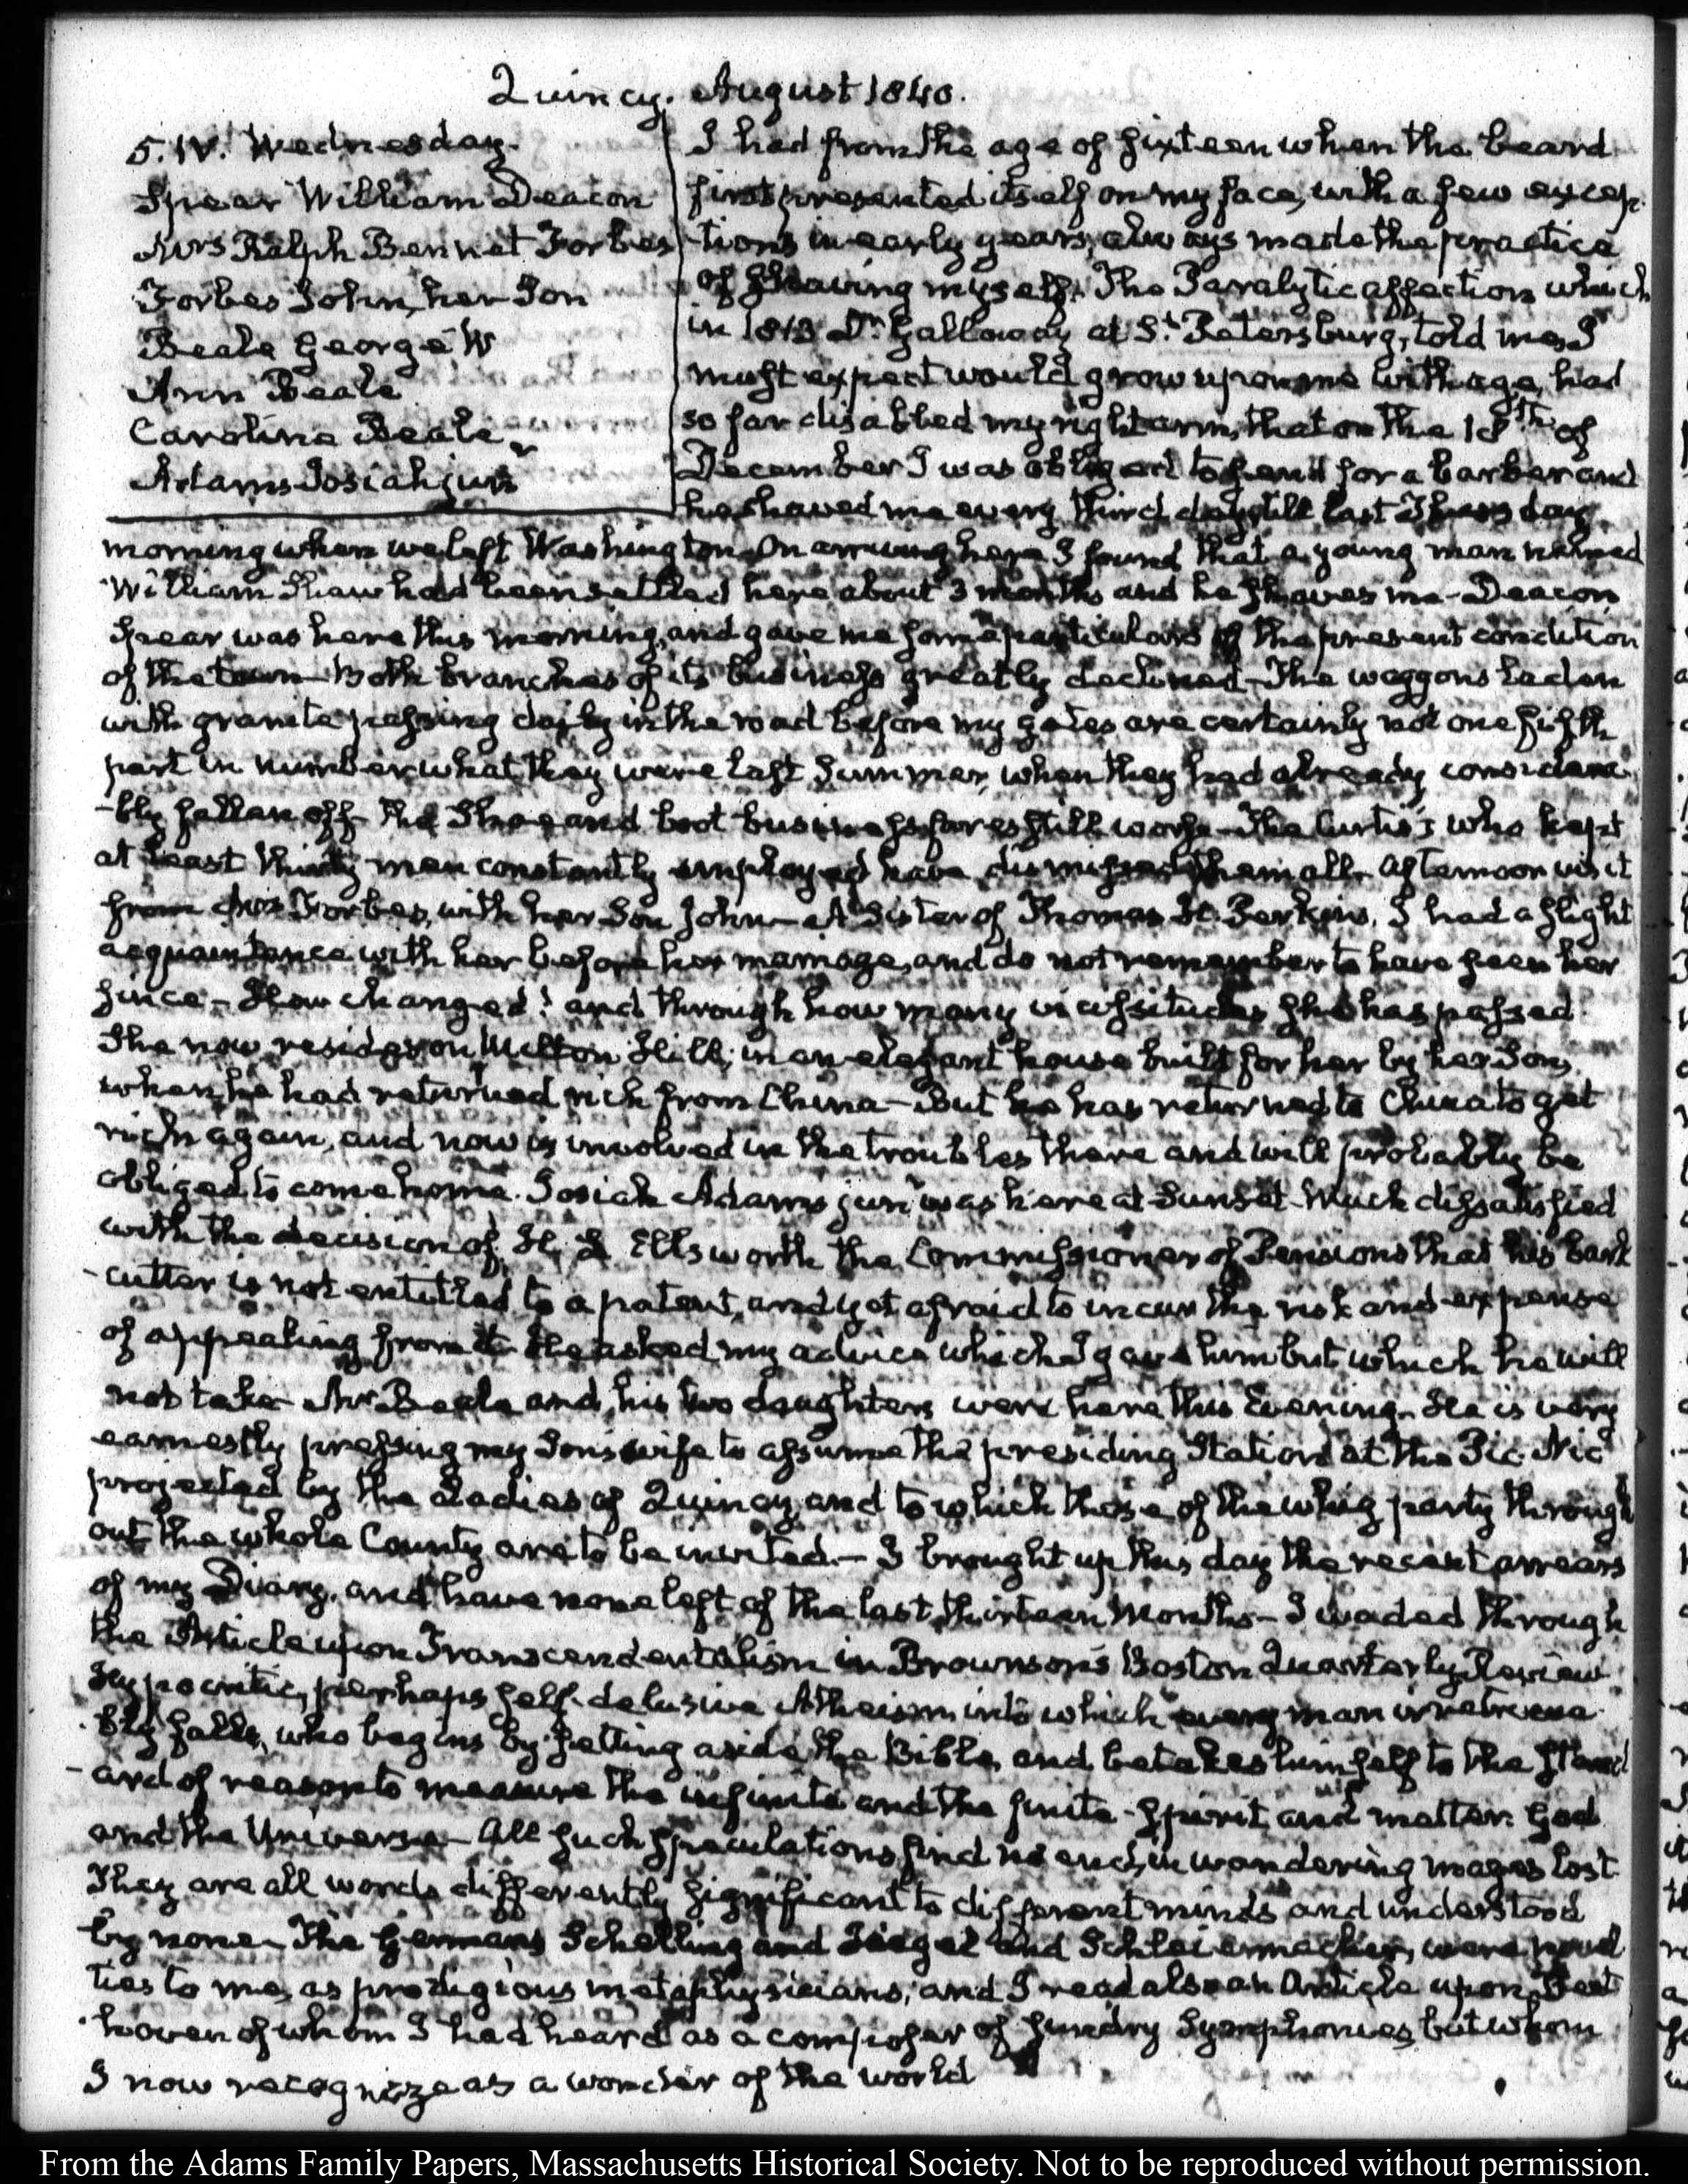 Quincy. August 1840.
5. IV. Wednesday.
Spear William Deacon
Mrs Ralph Bennet Forbes
Forbes John, her Son
Beale George W
Ann Beale
Caroline Beale
Adams Josiah junr
I had from the age of sixteen when the beard
first presented itself on my face, with a few excep-
tions in early years, always made the practice
of shaving myself. The Paralytic affection which
in 1813 Dr. Galloway at St. Petersburg, told me, I
must expect would grow upon me with age, had
so far disabled my right arm, that on the 18th of
December I was obliged to send for a barber and
he shaved me every third day till last Thursday
morning when we left Washington. On arriving here I found that a young man named
William Shaw had been settled here about 3 months and he shaves me - Deacon
Spear was here this morning, and gave me some particulars of the present condition
of the town - Both branches of its business greatly declined - The waggons laden
with granite passing daily in the road before my gates are certainly not one fifth
part in number, what they were last Summer, when they had already considera-
-bly fallen off - The Shoe and boot business fares still worse - The Curtis's who kept
at least thirty men constantly employed have dismissed them all - Afternoon visit
from Mrs Forbes, with her Son John - A Sister of Thomas H. Perkins, I had a slight
acquaintance with her before her marriage, and do not remember to have seen her
since - How changed! and through how many vicissitudes she has passed
She now resides on Milton Hill, in an elegant house built for her by her Son,
when he had returned rich from China - But he has returned to China to get
rich again, and now is involved in the troubles there and will probably be
obliged to come home. Josiah Adams junr was here at Sunset - Much dissatisfied
with the decision of H. L. Ellsworth the Commissioner of Pensions that his bark
-cutter is not entitled to a patent, and yet afraid to incur the risk and expense
of appealing from it - He asked my advice which I gave him but which he will
not take - Mr Beale and his two daughters were here this Evening. He is very
earnestly pressing my Son's wife to assume the presiding Station at the Pic Nic
projected by the Ladies of Quincy and to which those of the whig party through
out the whole County are to be invited. - I brought up this day the recent arrears
of my Diary, and have none left of the last thirteen Months - I waded through
the Article upon Transcendentalism in Brownson's Boston Quarterly Review.
Hypocritic, perhaps self-delusive Atheism, into which every man irretrieva-
-bly falls, who begins by setting aside the Bible, and betakes himself to the stand
-ard of reason to measure the infinite and the finite - Spirit and matter. God
and the Universe - All such speculations find no end, in wandering mazes lost.
They are all words differently significant to different minds and understood
by none - The Germans Schelling and and Schleiermacher, were novel
ties to me, as prodigious metaphysicians, and I read also an Article upon Beet
-hoven of whom I had heard as a composer of sundry Symphonies, but whom
I now recognize as a wonder of the world
From the Adams Family Papers, Massachusetts Historical Society. Not to be reproduced without permission.